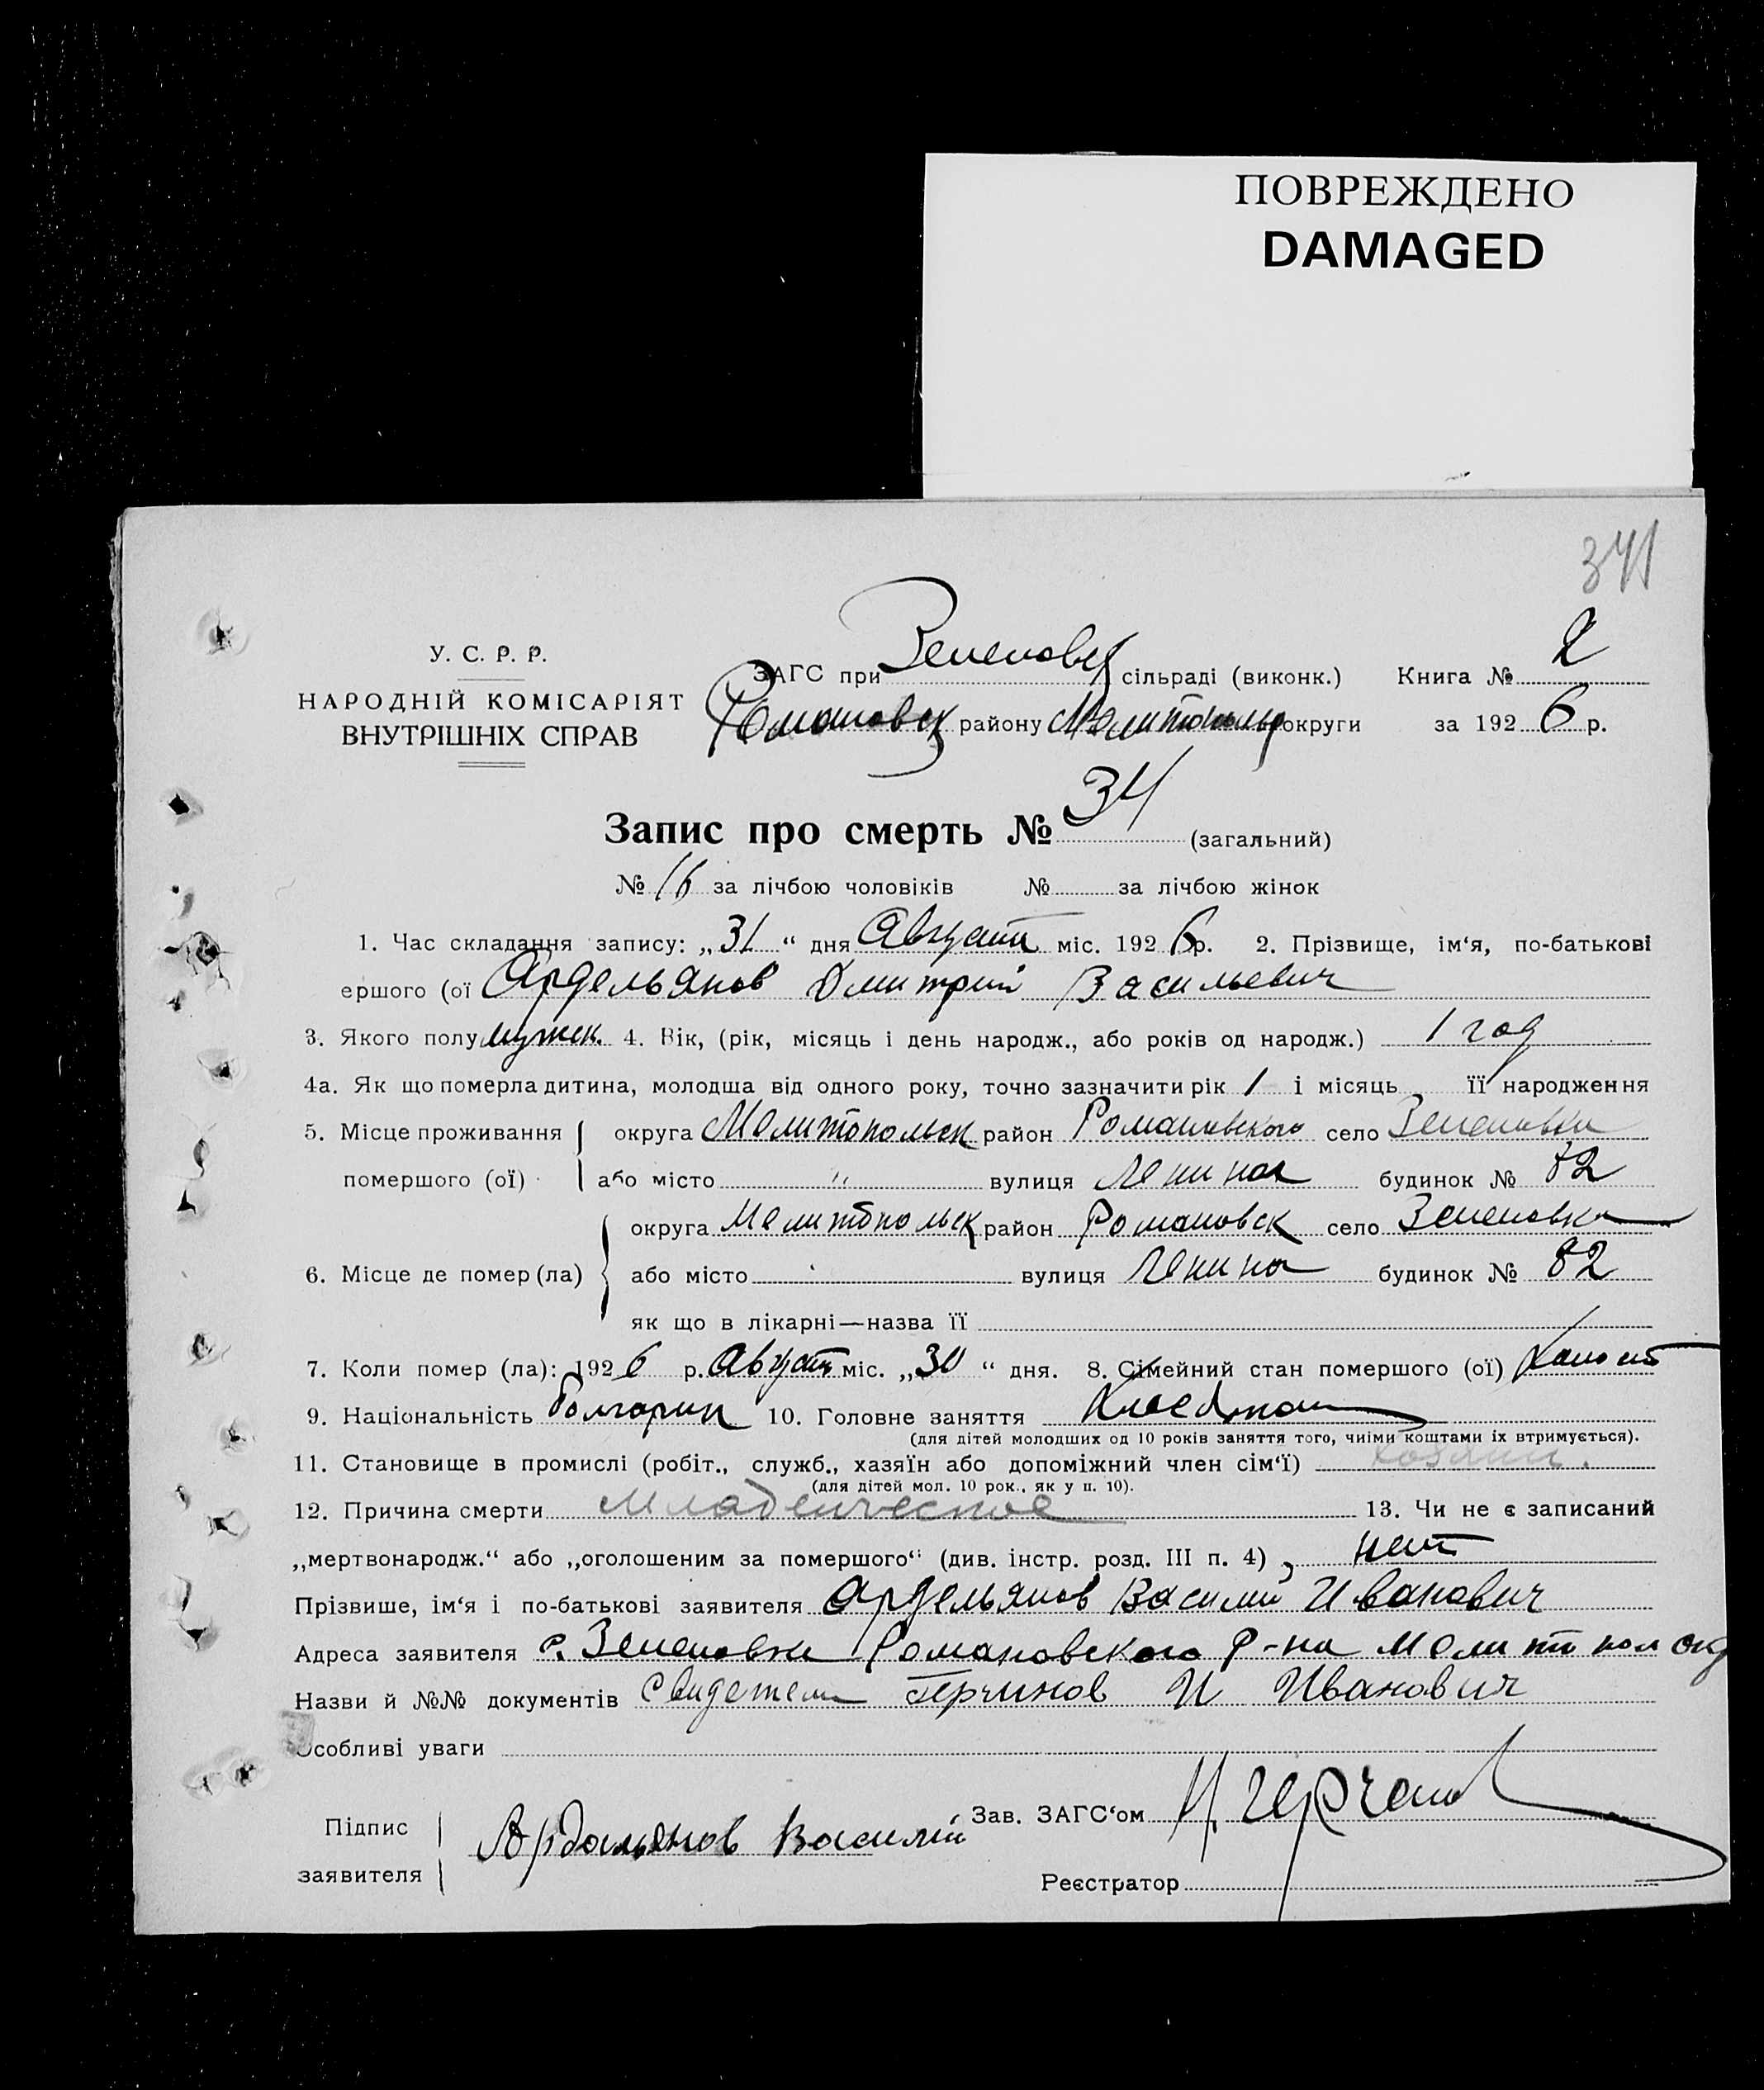 ПОВРЕЖДЕНО
DAMAGED
341
У. С. Р. Р.
НАРОДНІЙ КОМІСАРІЯТ
ВНУТРІШНІХ СПРАВ
ЗАГС при Зеленовск сільраді (виконк.) Книга № 2
Романовск району Мелитопольс округи за 1926 р.
Запис про смерть № 34 (загальний)
№ 16 за лічбою чоловіків № за лічбою жінок
1. Час складання запису: „31“ дня Август міс. 1926 р. 2. Прізвище, ім‘я, по-батькові
ершого (ої Ардельянов Дмитрий Васильевич
3. Якого полу мужск. 4. Вік, (рік, місяць і день народж., або років од народж.) 1 год
4а. Як що померла дитина, молодша від одного року, точно зазначити рік 1 і місяць її народження
5. Місце проживання округа Мелитопольск район Романовского село Зеленовки
померного (ої) або місто " вулиця Ленина будинок № 82
округа Мелитопольск район Романовск село Зеленовка
6. Місце де помер (ла) або місто вулиця Ленина будинок № 82
як що в лікарні—назва її
7. Коли помер (ла): 1926 р. Август міс. „30“ дня. 8. Сімейний стан помершого (ої) Холост
9. Національність Болгарин 10. Головне заняття Хлебопаш
(для дітей молодших од 10 років заняття того, чиіми коштами їх втримується).
11. Становище в промислі (робіт., служб., хазяїн або допоміжний член сім‘ї) хозяин.
(для дітей мол. 10 рок., як у п. 10).
12. Причина смерти Младенческое 13. Чи не є записаний
„мертвонародж.“ або „оголошеним за помершого“ (див. інстр. розд. III п. 4) нет
Прізвише, ім‘я і по-батькові заявителя Ардельянов Василий Иванович
Адреса заявителя с. Зеленовки Романовского р-на Мелитопол окр
Назви й №№ документів Свидетели И Иванович
Особливі уваги
Зав. ЗАГС‘ом
Підпис
заявителя Ардельянов Василий
Реєстратор